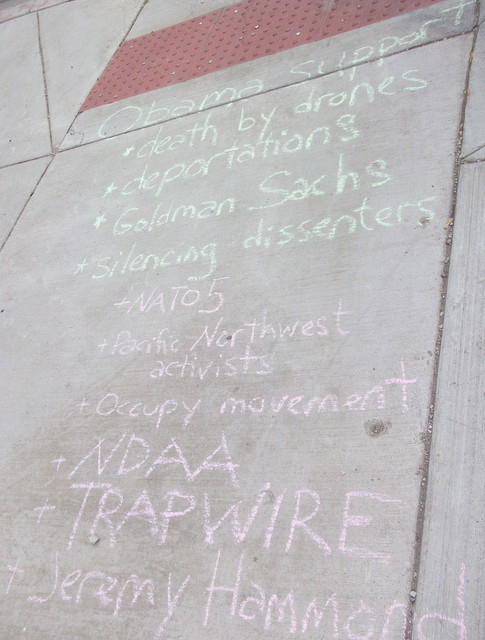 Obama support
*death by drones
*deportations
*Goldman Sachs
*Silencing dissenters
+NATO5
+Pacific Northwest
activists
+Occupy movement
+NDAA
+TRAPWIRE
+Jeremy Hammond